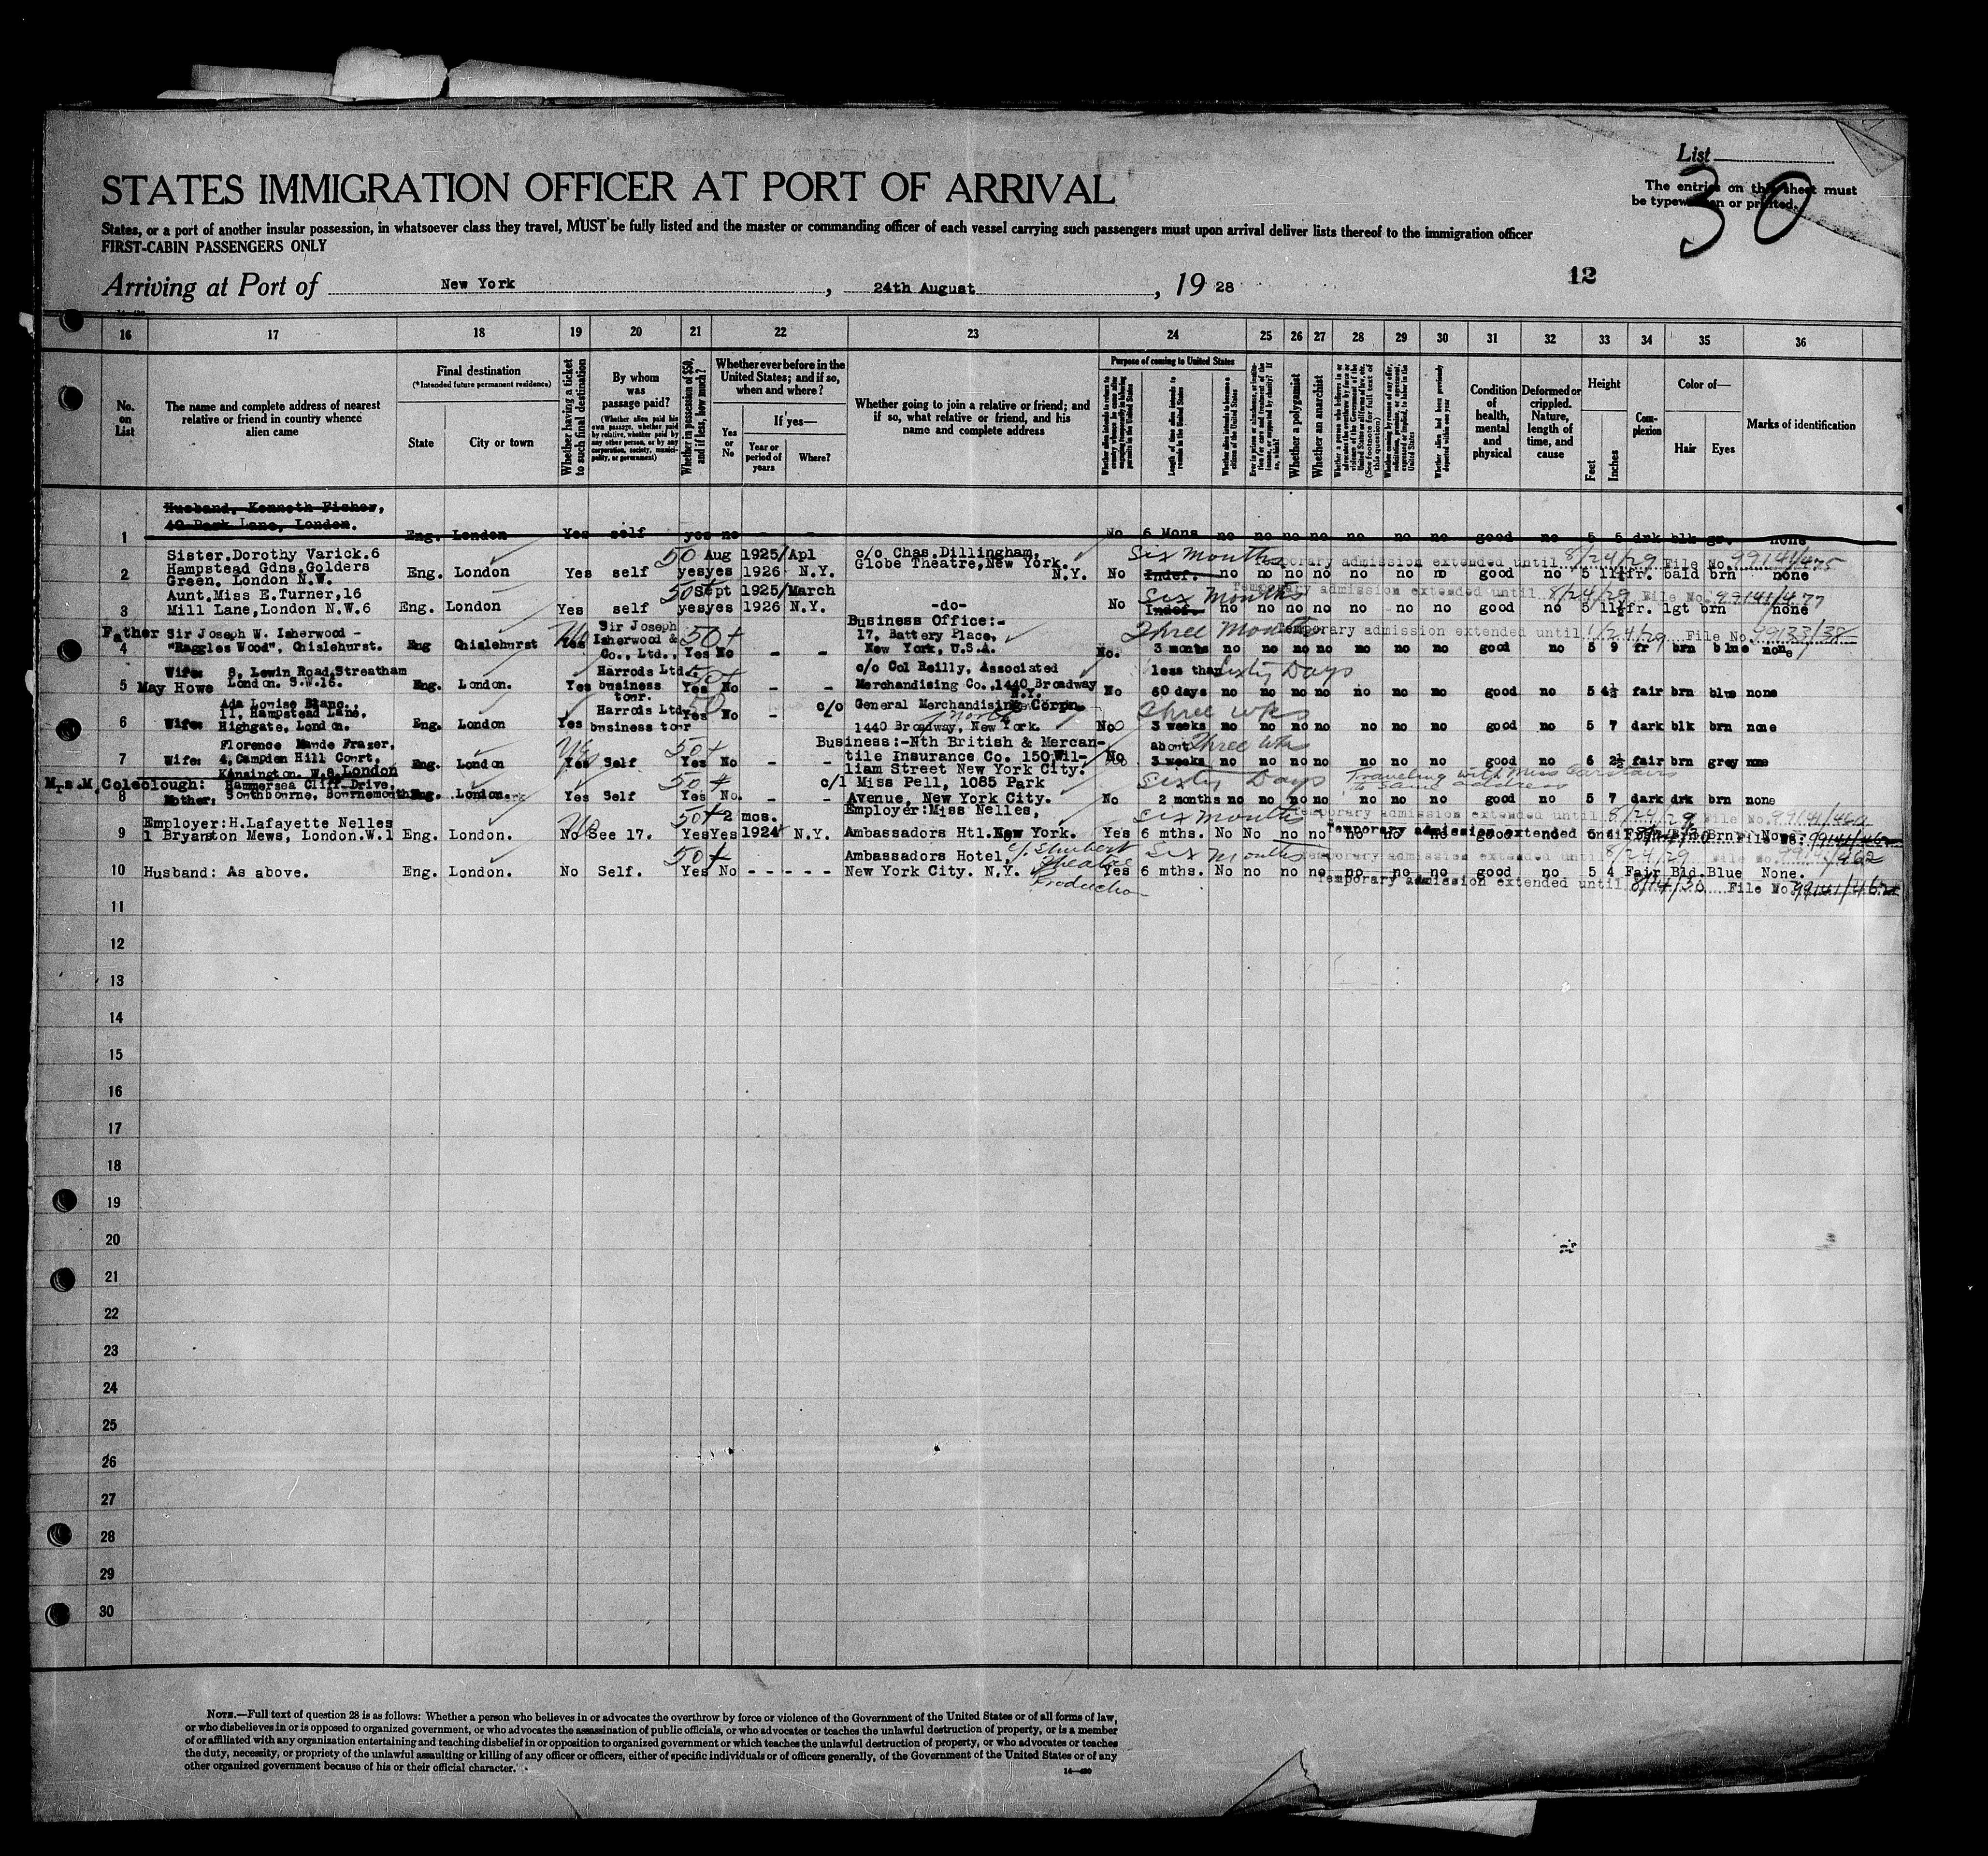 List
30
The entries on this sheet must
be typewritten or printed.
STATES IMMIGRATION OFFICER AT PORT OF ARRIVAL
States, or a port of another insular possession, in whatsoever class they travel, MUST be fully listed and the master or commanding officer of each vessel carrying such passengers must upon arrival deliver lists thereof to the immigration officer
FIRST-CABIN PASSENGERS ONLY
12
Arriving at Port of New York, 24th August, 19 28
16 17 18 19 20 21 22 23 24 25 26 27 28 29 30 31 32 33 34 35 36
No. on List
The name and complete address of nearest relative or friend in country whence alien came
Final destination
(*Intended future permanent residence)
State
City or town
Whether having a ticket to such final destination
By whom was passage paid?
(Whether alien paid his own passage, whether paid by relative, whether paid by any other person, or by any corporation, society, municipality, or government)
Whether in possession of $50, and if less, how much?
Whether ever before in the United States; and if so, when and where?
Yes or No
If yes—
Year or period of years
Where?
Whether going to join a relative or friend; and if so, what relative or friend, and his name and complete address
Purpose of coming to United States
Length of time alien intends to remain in the United States
Whether alien intends to become a citizen of the United States
Whether a polygamist
Whether an anarchist
(See footnote for full text of this question)
Whether alien had been previously deported within one year
Condition of health, mental and physical
Deformed or crippled. Nature, length of time, and cause
Height
Feet
Inches
Complexion
Color of—
Hair
Eyes
Marks of identification
Husband, Kenneth Fisher,
40 Park Lane, London.
1 Eng. London Yes self yes no - - No 6 Mons no no no no no no no good no 5 5 drk blk gr. none
Sister.Dorothy Varick.6 50 Aug 1925/Apl c/o Chas.Dillingham, Six Months Temporary admission extended until 8/24/29 File No. 99141/475
Hampstead Gdns.Golders Globe Theatre,New York.
2 Green. London N.W. Eng. London Yes self yesyes 1926 N.Y. N.Y. No Indef. no no no no no no no good no 5 11½ fr. bald brn none
Aunt.Miss E.Turner,16 50 Sept 1925/March Six Months Temporary admission extended until 8/24/29 File No. 99141/477
3 Mill Lane,London N.W.6 Eng. London Yes self yesyes 1926 N.Y. -do- No Indef. no no no no no no no good no 5 11½ fr. lgt brn none
Father Sir Joseph W. Isherwood - Sir Joseph 50+ Business Office:- Three Months Temporary admission extended until 1/24/29 File No. 99133/38
Isherwood & 17, Battery Place,
4 "Raggles Wood", Chislehurst. Eng Chislehurst Yes Co., Ltd., Yes No - - New York, U.S.A. No. 3 months no no no no no no no good no 5 9 fr brn blue none
Wife: 8, Lewin Road,Streatham Harrods Ltd. 50+ c/o Col Reilly, Associated less than Sixty Days
5 May Howe London. S.W.16. Eng. London. Yes business tour. Yes No - - Merchandising Co.,1440 Broadway N.Y. No 60 days no no no no no no no good no 5 4½ fair brn blue none
Ada Louise Blanc., Harrods Ltd 50 c/o General Merchandising Corpn. Three wks
11, Hampstead Lane,
6 Wife: Highgate, London. Eng. London Yes business tour Yes No - 1440 Broadway, New York. No 3 weeks no no no no no no no good no 5 7 dark blk brn none
Florence Maude Frazer, 50+ Business:-Nth British & Mercan- about Three wks
7 Wife: 4, Campden Hill Court, Eng. London Yes Self Yes No - - tile Insurance Co. 150 Wil- No 3 weeks no no no no no no no good no 6 2½ fair brn grey none
Kensington. W.8.London liam Street New York City.
Mrs.M.Colebough: Hammersea Cliff Drive, 50+ c/1 Miss Pell, 1085 Park Sixty Days Traveling with Miss Carstairs to same address
8 Mother: Southbourne, Bournemouth Eng. London. Yes Self Yes No. - - Avenue, New York City. No 2 months no no no no no no no good no 5 7 dark drk brn none
Employer:H.Lafayette Nelles No 50+ 2 mos. Employer:Miss Nelles, Six months Temporary admission extended until 8/24/29 File No. 99141/462
9 1 Bryanston Mews, London.W.1 Eng. London. No See 17. Yes Yes 1924 N.Y. Ambassadors Htl.New York. Yes 6 mths. No No no no no no no good
Temporary admission extended until File No. 99141/462
50+ Ambassadors Hotel, c/o Shubert Theatre Production Six Months Temporary admission extended until 8/24/29 File No. 99141/462
10 Husband: As above. Eng. London. No Self. Yes No - - - - - New York City. N.Y. Yes 6 mths. No no no no no no no good no 5 4 Fair Bld. Blue None.
Temporary admission extended until 8/14/30 File No. 99141/462
11
12
13
14
15
16
17
18
19
20
21
22
23
24
25
26
27
28
29
30
NOTE.—Full text of question 28 is as follows: Whether a person who believes in or advocates the overthrow by force or violence of the Government of the United States or of all forms of law,
or who disbelieves in or is opposed to organized government, or who advocates the assassination of public officials, or who advocates or teaches the unlawful destruction of property, or is a member
of or affiliated with any organization entertaining and teaching disbelief in or opposition to organized government or which teaches the unlawful destruction of property, or who advocates or teaches
the duty, necessity, or propriety of the unlawful assaulting or killing of any officer or officers, either of specific individuals or of officers generally, of the Government of the United States or of any
other organized government because of his or their official character.
14—430